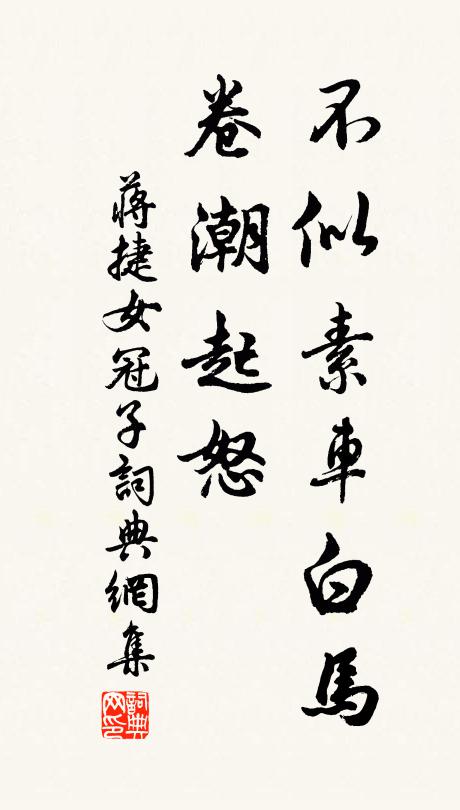 不似素車白馬
卷潮起怒
蔣捷女冠子詞典網集
詞典网印